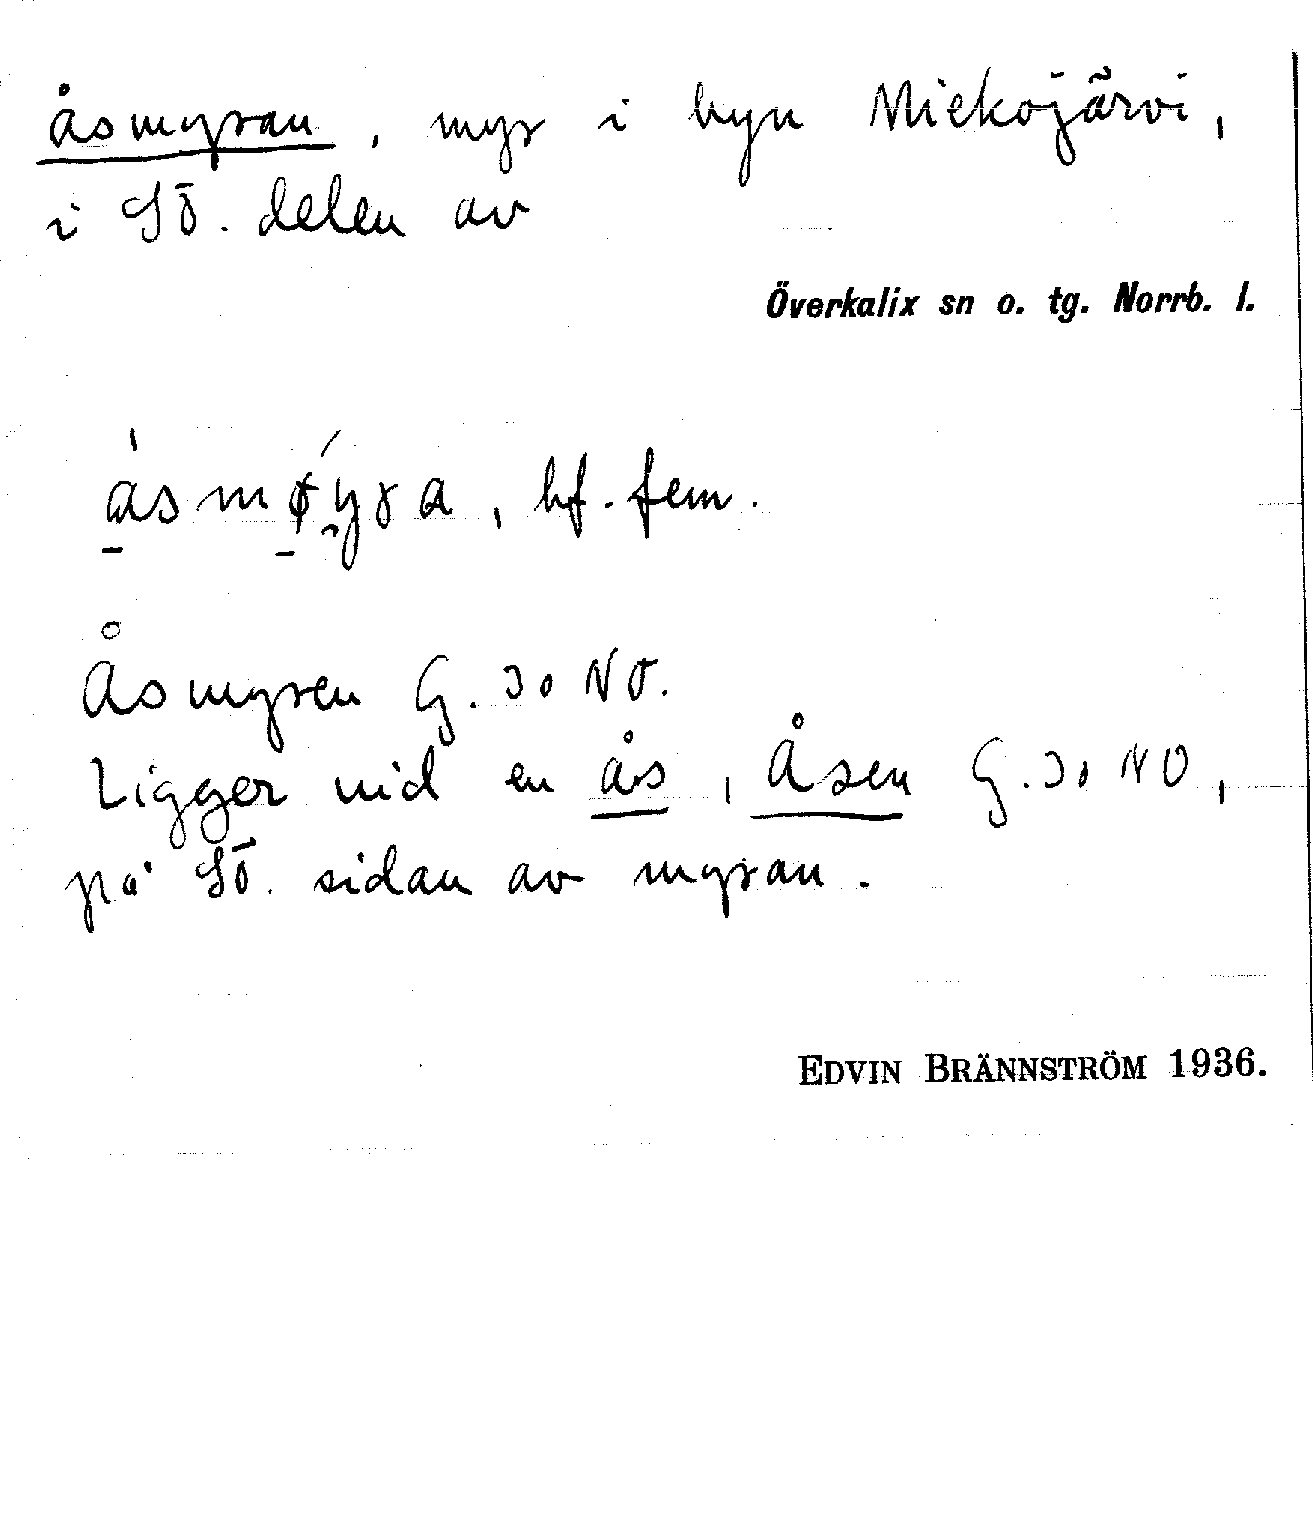 åsmyran, myr i byn Miekojärvi,
i SÖ. delen av
Överkalix sn o. tg. Norrb. l.
ås mø̱y̯ra, bf. fem.
Åsmyren G. 30 NO.
Ligger vid en ås, Åsen G. 30 NO,
på SÖ. sidan av myran.
EDVIN BRÄNNSTRÖM 1936.